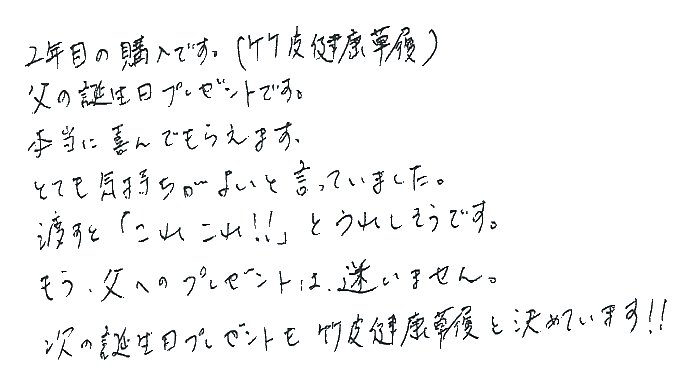 2年目の購入です。(竹皮健康草履)
父の誕生日プレゼントです。
本当に喜んでもらえます、
とても気持ちがよいと言っていました。
渡すと「これこれ!!」とうれしそうです。
もう、父へのプレゼントは、迷いません。
次の誕生日プレゼントも竹皮健康草履と決めています!!